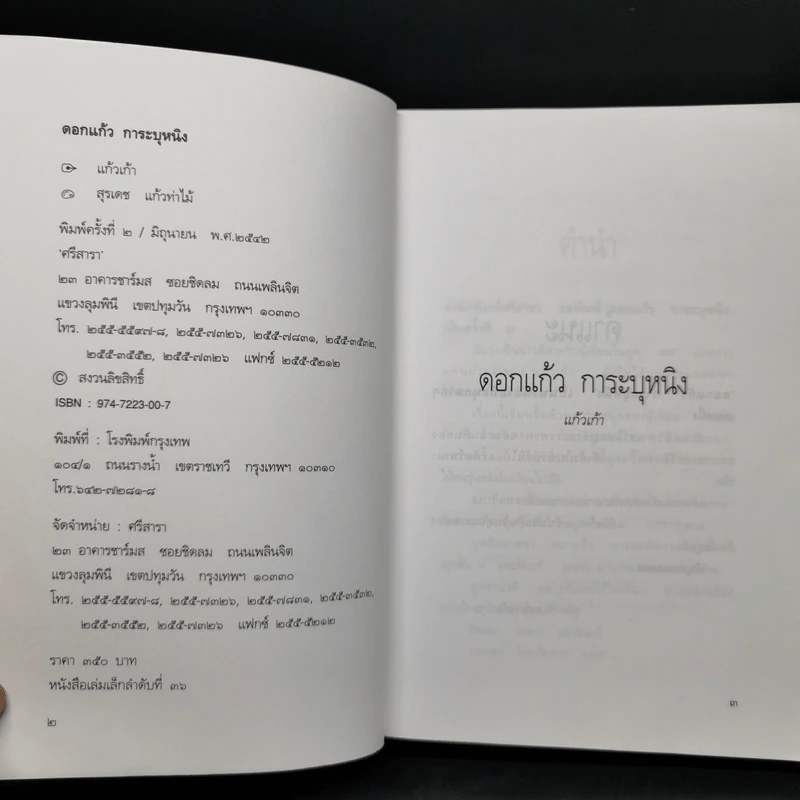 ดอกแก้ว การะบุหนิง
แก้วเก้า
สุรเดช แก้วท่าไม้
พิมพ์ครั้งที่ ๒ / มิถุนายน พ.ศ.๒๕๔๒
'ศรีสารา'
๒๓ อาคารชาร์มส ซอยชิดลม ถนนเพลินจิต
แขวงลุมพินี เขตปทุมวัน กรุงเทพฯ ๑๐๓๓๐
โทร. ๒๕๕-๕๕๙๗-๘, ๒๕๕-๗๓๒๖, ๒๕๕-๗๘๓๑, ๒๕๕-๓๕๓๒,
๒๕๕-๓๕๕๒, ๒๕๕-๗๓๒๖ แฟกซ์ ๒๕๕-๕๒๑๒
© สงวนลิขสิทธิ์
ISBN : 974-7223-00-7
พิมพ์ที่ : โรงพิมพ์กรุงเทพ
๑๐๔/๑ ถนนรางน้ำ เขตราชเทวี กรุงเทพฯ ๑๐๓๑๐
โทร.๖๔๒-๗๒๘๑-๘
จัดจำหน่าย : ศรีสารา
๒๓ อาคารชาร์มส ซอยชิดลม ถนนเพลินจิต
แขวงลุมพินี เขตปทุมวัน กรุงเทพฯ ๑๐๓๓๐
โทร. ๒๕๕-๕๕๙๗-๘, ๒๕๕-๗๓๒๖, ๒๕๕-๗๘๓๑, ๒๕๕-๓๕๓๒,
๒๕๕-๓๕๕๒, ๒๕๕-๗๓๒๖ แฟกซ์ ๒๕๕-๕๒๑๒
ราคา ๓๕๐ บาท
หนังสือเล่มเล็กลำดับที่ ๓๖
๒
ดอกแก้ว การะบุหนิง
แก้วเก้า
๓